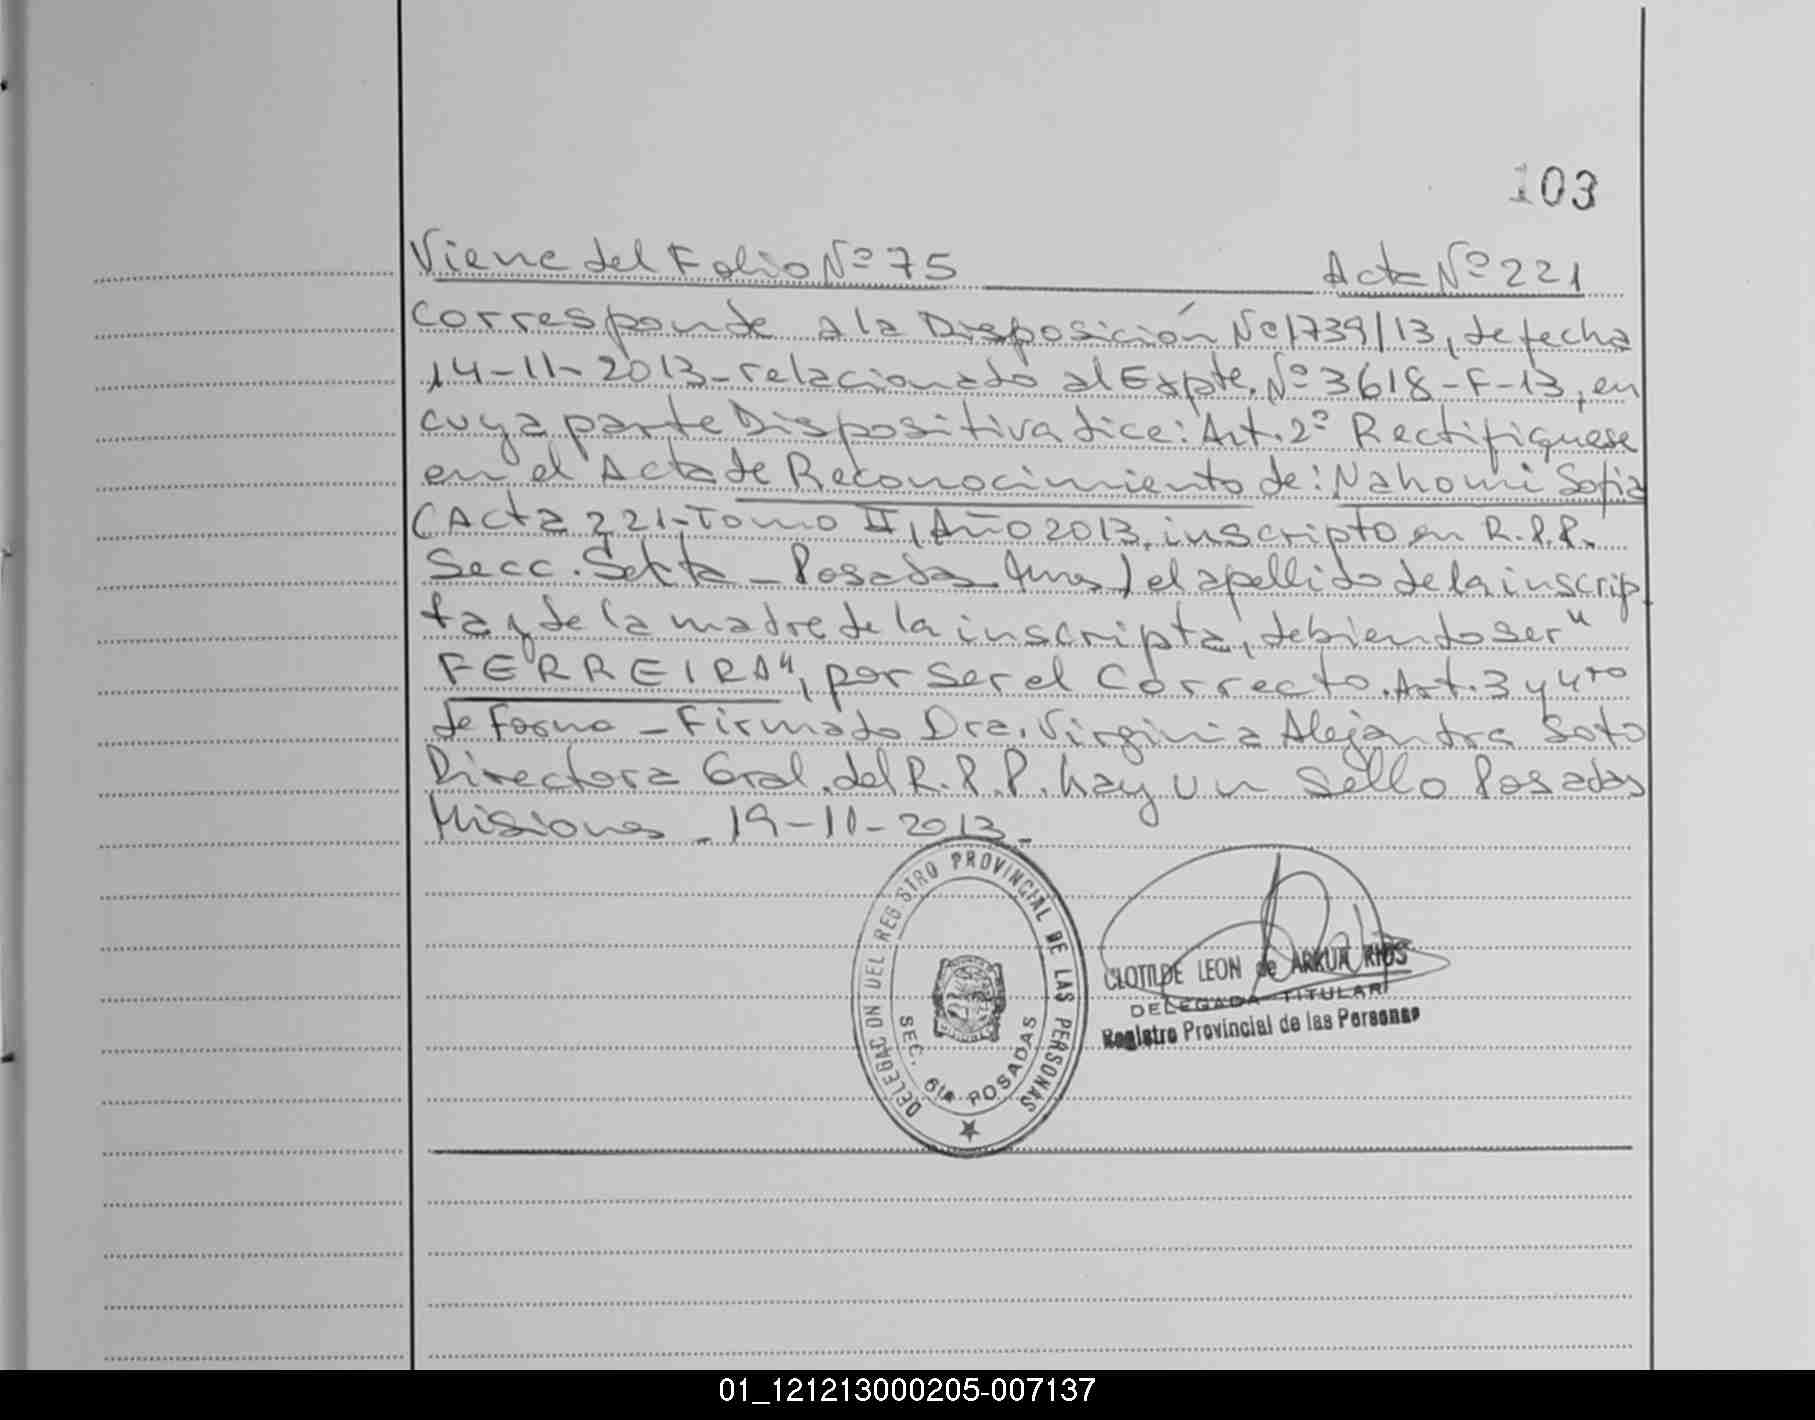 103
Viene del Folio Nº 75 Acta Nº 221
Corresponde a la Disposición Nº 1739/13, de fecha
14-11-2013-relacionado al Expte. Nº 3618-F-13, en
cuya parte Dispositiva dice: Art. 2º Rectifiquese
en el Acta de Reconocimiento de: Nahomi Sofia
(Acta 221-Tomo II, Año 2013, inscripto en R.P.P.
Secc. Sexta - Posadas Mnes) el apellido de la inscrip
ta y de la madre de la inscripta, debiendo ser "
FERREIRA", por ser el Correcto. Art. 3 y 4to
de Forma - Firmado Dra. Virginia Alejandra Soto
Directora Gral. del R.P.P. hay un Sello Posadas
Misiones - 19-11-2013-
DELEGACION DEL REGISTRO PROVINCIAL DE LAS PERSONAS
SEC. 6ta POSADAS
CLOTILDE LEON de ARKUA RIOS
DELEGADA TITULAR
Registro Provincial de las Personas
01_121213000205-007137